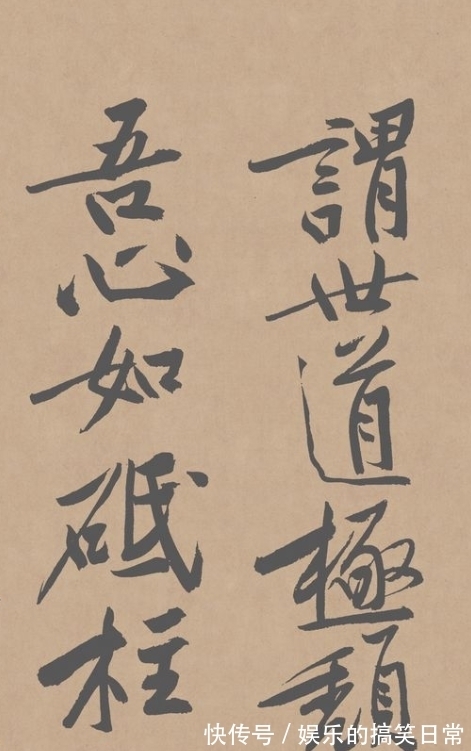 謂世道極頹
吾心如砥柱
快传号/娱乐的搞笑日常